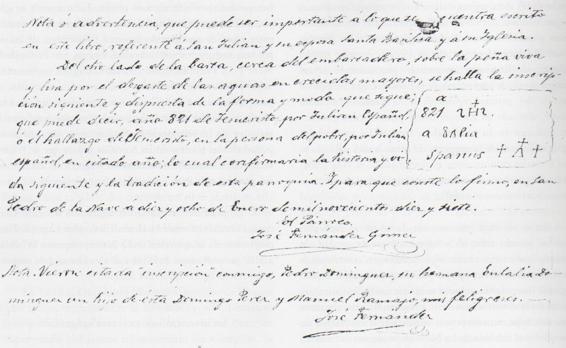 Nota ó advertencia, que puede ser importante á lo que se encuentra escrito
en este libro, referente á San Julian, y su esposa Santa Basilisa y á su Iglesia.
Del otro lado de la barca, cerca del embarcadero, sobre la peña viva
y lisa por el desgaste de las aguas en crecidas mayores, se halla la inscrip-
ción siguiente y dispuesta de la forma y modo que sigue;
que puede decir, año 821 de Jesucristo, por Julian Español,
ó el hallazgo de Jesucristo, en la persona del pobre, por Julian
español, en citado año; lo cual confirmaria la historia y vi-
da siguiente y la tradición de esta parroquia. Y para que conste lo firmo, en San
Pedro de la Nave á diez y ocho de Enero de mil novecientos diez y siete.
a
821
a
spanus
El Párroco
José Fernández
Nota. Vieron citada inscripción conmigo, Pedro Dominguez, su hermana Eulalia Do-
minguez un hijo de ésta Domingo Perez y Manuel Ramajo, mis feligreses.
José Fernández